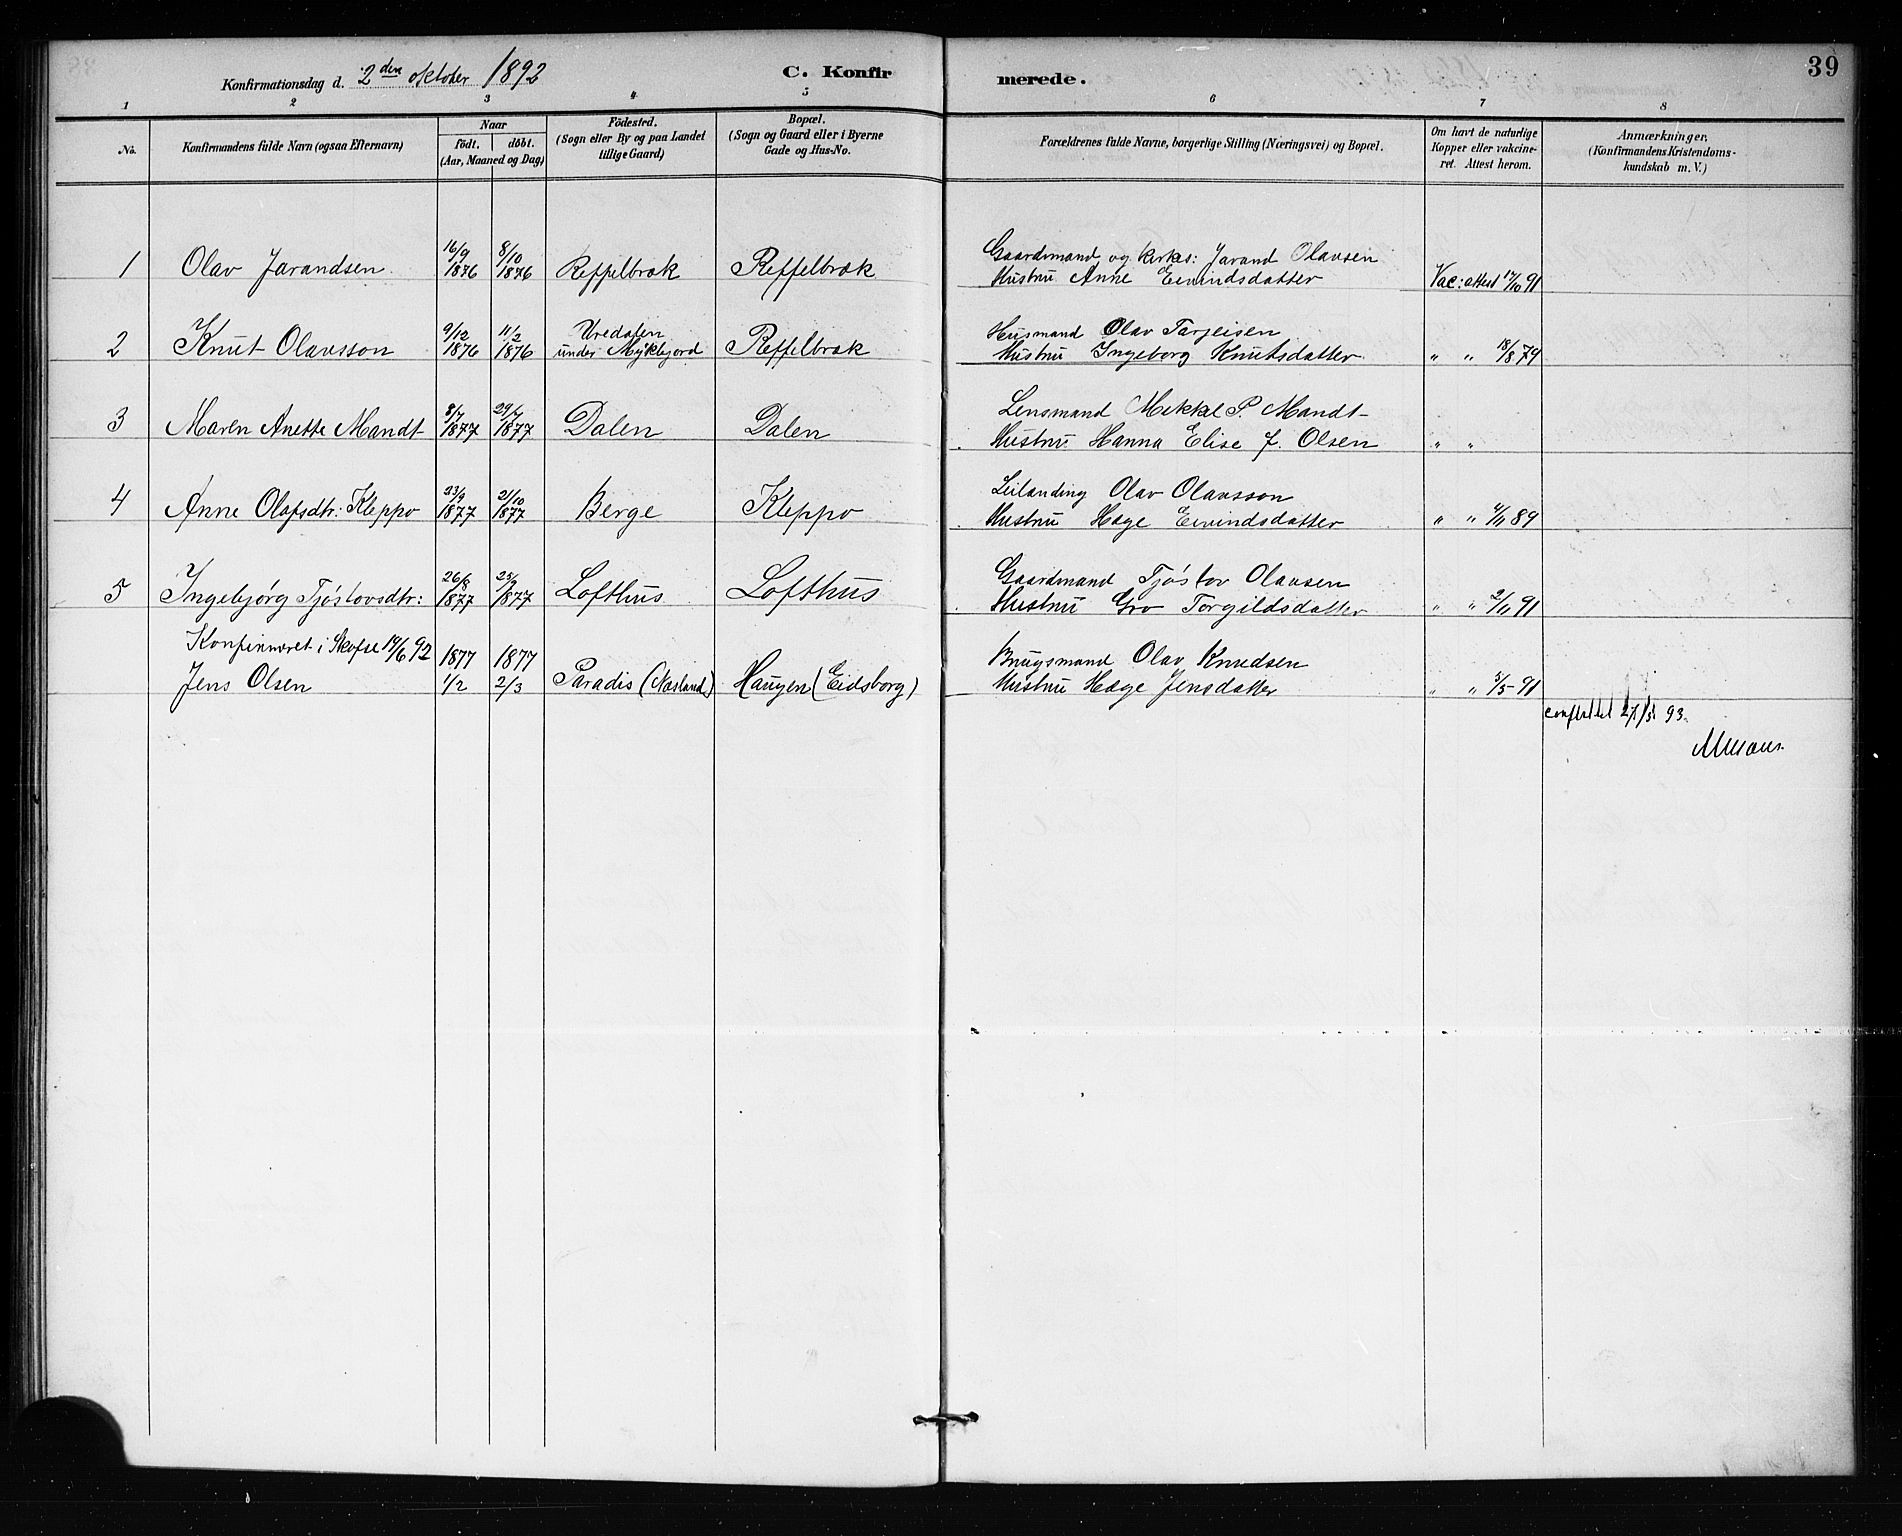 39
Konfirmationsdag d. 2den oktober 1892
C. Konfirmerede.
1 2 3 4 5 6 7 8
No.
Konfirmandens fulde Navn (ogsaa Efternavn)
Naar
født. døbt.
(Aar, Maaned og Dag)
Födested.
(Sogn eller By og paa Landet
tillige Gaard)
Bopæl.
(Sogn og Gaard eller i Byerne
Gade og Hus-No.
Forældrenes fulde Navne, borgerlige Stilling (Næringsvei) og Bopæl.
Om havt de naturlige
Kopper eller vakcine-
ret. Attest herom.
Anmærkninger,
(Konfirmandens Kristendoms-
kundskab m. V.)
16/9 8/10 Gaardmand og kirkes: Jarand Olavsen
1 Olav Jarandsen 1876 1876 Reffelbrak Reffelbrak Hustru Anne Eivindsdatter Vac: attest 17/10 91
9/12 11/2 Uredalen Husmand Olav Tarjeisen
2 Knut Olavsson 1876 1876 under Mykbejord Reffelbrak Hustru Ingeborg Knutsdatter " " 18/8 79
8/7 29/7 Lensmand Mikkel P. Mandt
3 Maren Anette Mandt 1877 1877 Dalen Dalen Hustru Hanna Elise f. Olsen " "
23/9 21/10 Leilænding Olav Olavsson
4 Anne Olafsdtr: Kleppo 1877 1877 Berge Kleppo Hustru Hæge Eivindsdatter " " 4/11 89
26/8 23/9 Gaardmand Tjöstov Olavsen
5 Ingebjörg Tjöstovsdtr: 1877 1877 Lofthus Lofthus Hustru Gro Torgildsdatter " " 2/11 91
Konfirmeret i Skafse 19/6 92 1877 1877 Brugsmand Olav Knudsen
Jens Olsen 1/2 2/3 Paradis (Næsland) Haugen (Eidsborg) Hustru Hæge Jensdatter " " 3/5 91
93.